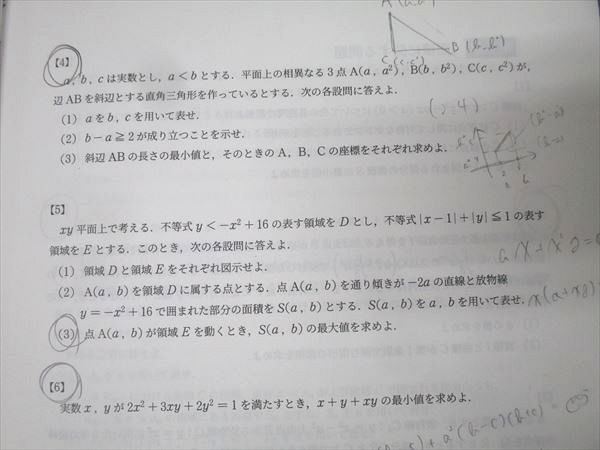 A(a,a²)
C(c,c²)
B(b,b²)
【4】
a, b, c は実数とし，a＜b とする．平面上の相異なる 3 点 A(a, a²)，B(b, b²)，C(c, c²) が，
辺 AB を斜辺とする直角三角形を作っているとする．次の各設問に答えよ．
(1) a を b, c を用いて表せ．
(2) b－a≧2 が成り立つことを示せ．
(3) 斜辺 AB の長さの最小値と，そのときの A，B，C の座標をそれぞれ求めよ．
【5】
xy 平面上で考える．不等式 y＜－x²＋16 の表す領域を D とし，不等式 |x－1|＋|y|≦1 の表す
領域を E とする．このとき，次の各設問に答えよ．
(1) 領域 D と領域 E をそれぞれ図示せよ．
(2) A(a, b) を領域 D に属する点とする．点 A(a, b) を通り傾きが －2a の直線と放物線
y＝－x²＋16 で囲まれた部分の面積を S(a, b) とする．S(a, b) を a, b を用いて表せ．
(3) 点 A(a, b) が領域 E を動くとき，S(a, b) の最大値を求めよ．
【6】
実数 x，y が 2x²＋3xy＋2y²＝1 を満たすとき，x＋y＋xy の最小値を求めよ．